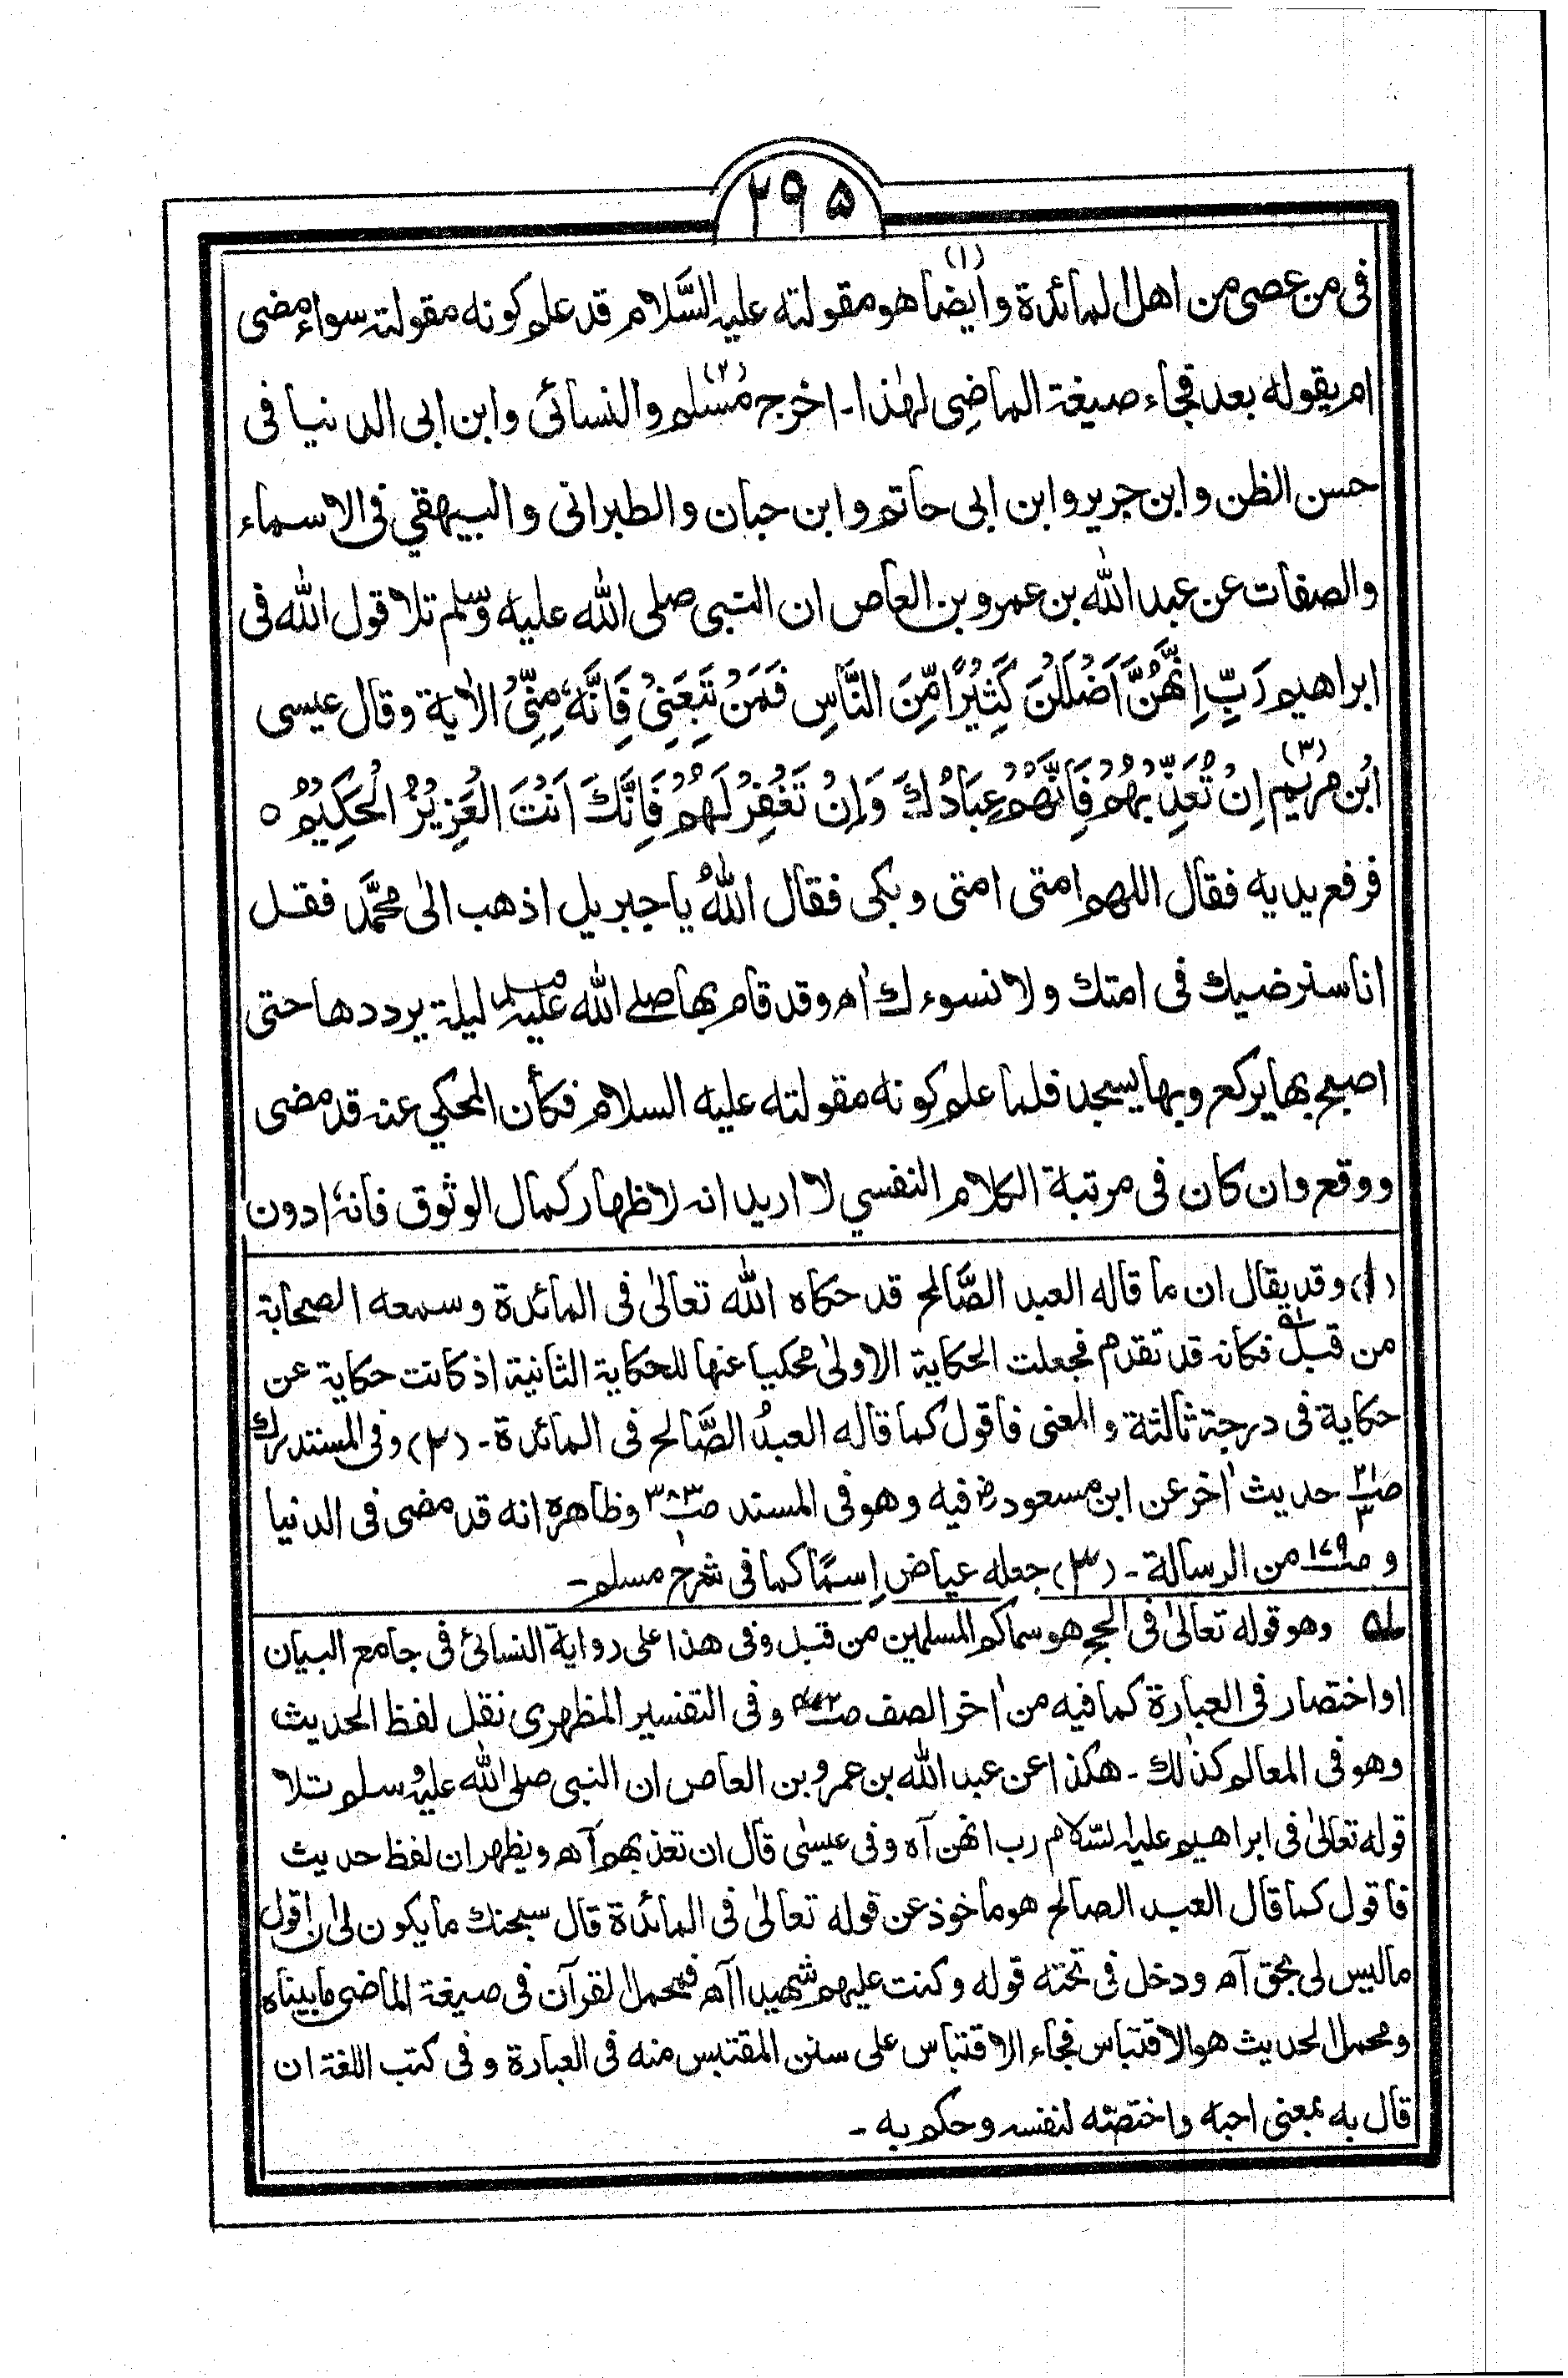 ۲۹۵
فی من عصی من اهل المائدة وایضا(۱) هو مقولته علیه السَّلام قد علم کونه مقولته سواء مضی
ام یقوله بعد فجاء صیغة الماضِی لهٰذا۔ اخرج مُسلم(۲) والنسائی وابن ابی الدنیا فی
حسن الظن وابن جریر وابن ابی حاتم وابن حبان والطبرانی والبیهقي فی الاسماء
والصفات عن عبد الله بن عمرو بن العاص ان النبی صلی الله علیه وسلم تلا قول الله فی
ابراهیم رَبِّ اِنَّهُنَّ اَضْلَلْنَ کَثِیْرًا مِّنَ النَّاسِ فَمَنْ تَبِعَنِیْ فَاِنَّهٗ مِنِّیْ الاٰیة وقال عیسی
ابْن مریم(۳) اِنْ تُعَذِّبْهُمْ فَاِنَّهُمْ عِبَادُكَ وَاِنْ تَغْفِرْ لَهُمْ فَاِنَّكَ اَنْتَ الْعَزِیْزُ الْحَکِیْمُ ○
فرفع یدیه فقال اللهم امتی امتی وبکی فقال اللهُ یا جبریل اذهب الیٰ محمَّد فقل
انا سنرضیك فی امتك ولا نسوءك اٰه وقد قام بها صلے الله علیہ وسلم لیلة یرددها حتی
اصبح بها یرکع وبها یسجد فلما علم کونه مقولته علیه السلام فکأن المحکي عنه قد مضی
ووقع وان کان فی مرتبة الکلام النفسي لا ارید انه لاظهار کمال الوثوق فانهٗ ادون
(۱) وقد یقال ان ما قاله العبد الصَّالح قد حکاه الله تعالیٰ فی المائدة وسمعه الصحابة
من قبل فکانه قد تقدم فجعلت الحکایة الاولیٰ محکیا عنها للحکایة الثانیة اذ کانت حکایة عن
حکایة فی درجة ثالثة والمعنی فاقول کما قاله العبدُ الصَّالح فی المائدة۔ (۲) وفی المستدرك
ص۲۱ ۳ حدیث اٰخر عن ابن مسعود رض فیه وهو فی المسند ص۳۸۳ ۱ وظاهره انه قد مضی فی الدنیا
و ص۱۷۹ من الرسالة۔ (۳) جعله عیاض اِسمًا کما فی شرح مسلم۔
وهو قوله تعالیٰ فی الحج هو سماکم المسلمین من قبل وفی هذا علی روایة النسائی فی جامع البیان
او اختصار فی العبارة کما فیه من اٰخر الصف وفی التفسیر المظهری نقل لفظ الحدیث
وهو فی المعالم کذٰلك۔ هکذا عن عبد الله بن عمرو بن العاص ان النبی صلی الله علیه وسلم تلا
قوله تعالیٰ فی ابراهیم علیه السَّلام رب انهن آه وفی عیسٰی قال ان تعذبهم آه ویظهر ان لفظ حدیث
فاقول کما قال العبد الصالح هو ماخوذ عن قوله تعالیٰ فی المائدة قال سبحنك ما یکون لی ان اقول
ما لیس لی بحق آه ودخل فی تحته قوله وکنت علیهم شهیدا آه فمحمل القرآن فی صیغة الماضی ما بیناه
ومحمل الحدیث هو الاقتباس فجاء الاقتباس علی سنن المقتبس منه فی العبارة وفی کتب اللغة ان
قال به بمعنی احبه واختصّه لنفسه وحکم به۔